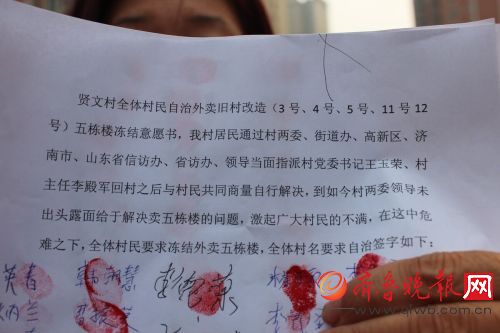 贤文村全体村民自治外卖旧村改造（3号、4号、5号、11号12
号）五栋楼冻结意愿书，我村居民通过村两委、街道办、高新区、济
南市、山东省信访办、省访办、领导当面指派村党委书记王玉荣、村
主任李殿军回村之后与村民共同商量自行解决，到如今村两委领导未
出头露面给于解决卖五栋楼的问题，激起广大村民的不满，在这中危
难之下，全体村民要求冻结外卖五栋楼，全体村名要求自治签字如下：
齐鲁晚报网
www.qlwb.com.cn